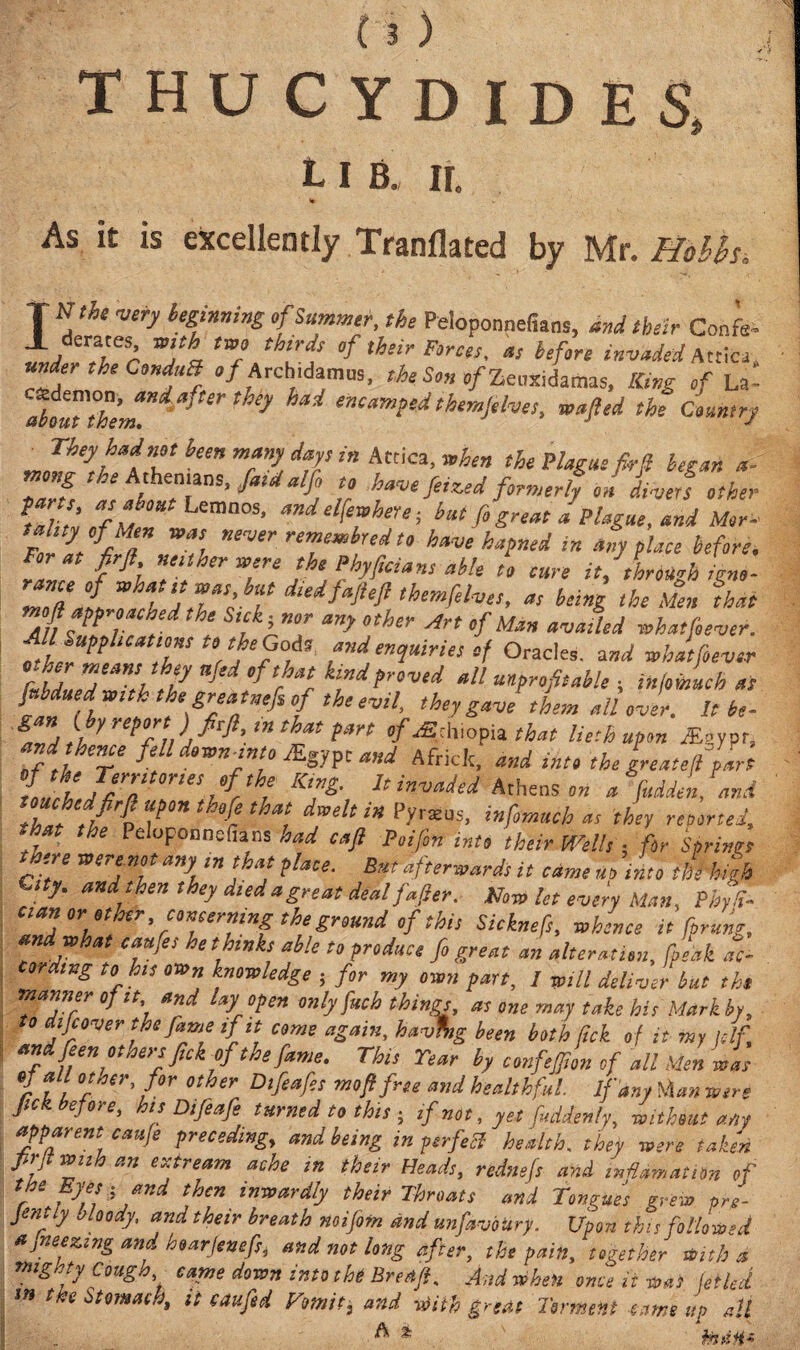 ( 3 )
THUCYDIDES,
LIB. II.
As it is excellently Tranſlated by Mr. Hobbs.
IN the very beginning of Summer, the Peloponneſians, and their Confe-
derates, with two thirds of their Forces, as before invaded Attica,
under the Conduct of Archidamus, the Son of Zeuxidamas, King of La-
cædemon, and after they had encamped themſelves, waſted the Country
about them.
They had not been many days in Attica, when the Plague firſt began a-
mong the Athenians, ſaid alſo to have ſeized formerly on divers other
parts, as about Lemnos, and elſewhere; but ſo great a Plague, and Mor-
tality of Men was never remembred to have hapned in any place before.
For at firſt, neither were the Phyſicians able to cure it, through igno-
rance of what it was, but died faſteſt themſelves, as being the Men that
moſt approached the Sick; nor any other Art of Man availed whatſoever.
All Supplications to the Gods, and enquiries of Oracles, and whatſoever
other means they uſed of that kind proved all unprofitable; inſomuch as
ſubdued with the greatneſs of the evil, they gave them all over. It be-
gan (by report) firſt, in that part of Æthiopia that lieth upon Ægypt,
and thence fell down into Ægypt and Africk, and into the greateſt part
of the Territories of the King. It invaded Athens on a ſudden, and
touched firſt upon thoſe that dwelt in Pyræus, inſomuch as they reported,
that the Peloponneſians had caſt Poiſon into their Wells; for Springs
there were not any in that place. But afterwards it came up into the high
City, and then they died a great deal faſter. Now let every Man, Phyſi-
cian or other, concerning the ground of this Sickneſs, whence it ſprung,
and what cauſes he thinks able to produce ſo great an alteration, ſpeak ac-
cording to his own knowledge; for my own part, I will deliver but the
manner of it, and lay open only ſuch things, as one may take his Mark by,
to diſcover the ſame if it come again, having been both ſick of it my ſelf,
and ſeen others ſick of the ſame. This Year by confeſſion of all Men was
of all other, for other Diſeaſes moſt free and healthful. If any Man were
ſick before, his Diſeaſe turned to this; if not, yet ſuddenly, without any
apparent cauſe preceding, and being in perfect health, they were taken
firſt with an extream ache in their Heads, redneſs and inflamation of
the Eyes; and then inwardly their Throats and Tongues grew pre-
ſently bloody, and their breath noiſom and unſavoury. Upon this followed
a ſneezing and hoarſeneſs, and not long after, the pain, together with a
mighty Cough, came down into the Breaſt. And when once it was ſetled
in the Stomach, it cauſed Vomit, and with great Torment came up all
A 2